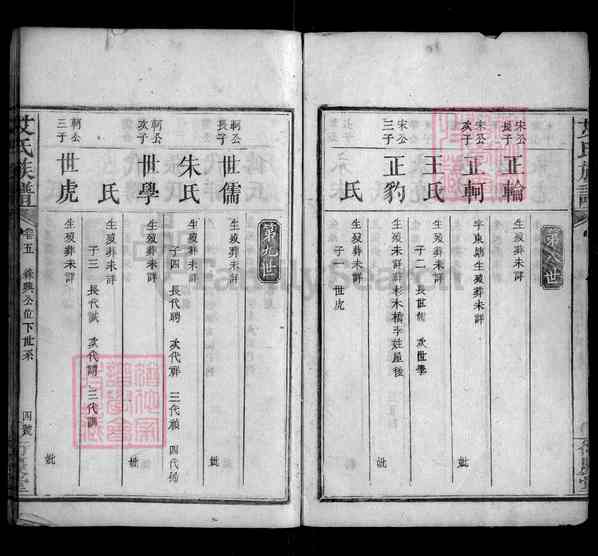 第八世
宋公長子
正輪
生歿葬未詳
妣
宋公次子
正軻
字東魁生歿葬未詳
王氏
生歿葬未詳
子二 長世儒 次世學
宋公三子
正豹
生歿葬未詳葬杉木橋李姓屋後
妣
氏
子一 世虎
艾氏族譜
卷五 條興公位下世系
四號
第九世
軻公長子
世儒
生歿葬未詳
妣
朱氏
生歿葬未詳
子四 長代聘 次代群 三代禎 四代
軻公次子
世學
生歿葬未詳
妣
氏
子三 長代誠 次代 三代
軻公三子
世虎
生歿葬未詳
妣